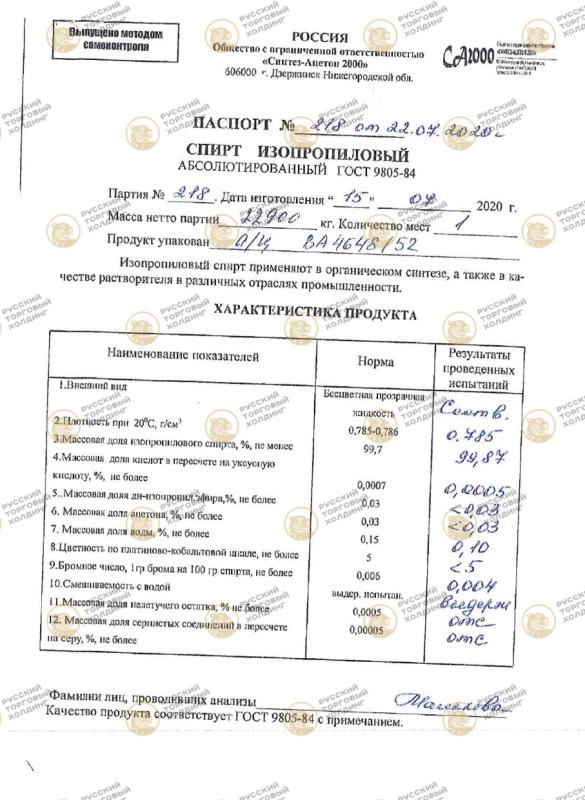 Выпущено методом
самоконтроля
РОССИЯ
Общество с ограниченной ответственностью
«Синтез-Ацетон 2000»
606000 г. Дзержинск Нижегородской обл.
СА2000
ПАСПОРТ № 218 от 22.07.2020г
СПИРТ ИЗОПРОПИЛОВЫЙ
АБСОЛЮТИРОВАННЫЙ ГОСТ 9805-84
Партия № 218. Дата изготовления "15" 07 2020 г.
Масса нетто партии 22900 кг. Количество мест 1
Продукт упакован а/ц ВА4648/52
Изопропиловый спирт применяют в органическом синтезе, а также в ка-
честве растворителя в различных отраслях промышленности.
ХАРАКТЕРИСТИКА ПРОДУКТА
Наименование показателей Норма Результаты проведенных испытаний
1.Внешний вид Бесцветная прозрачная жидкость Соотв.
2.Плотность при 20⁰С, г/см³ 0,785-0,786 0.785
3.Массовая доля изопропилового спирта, %, не менее 99,7 99,87
4.Массовая доля кислот в пересчете на уксусную
кислоту, %, не более 0,0007 0,0005
5..Массовая доля ди-изопропил.эфира,%, не более 0,03 <0,03
6. Массовая доля ацетона, %, не более 0,03 <0,03
7. Массовая доля воды, %, не более 0,15 0,10
8.Цветность по платиново-кобальтовой шкале, не более 5 <5
9.Бромное число, 1гр брома на 100 гр спирта, не более 0,006 0,004
10.Смешиваемость с водой выдер. испытан. выдерж
11.Массовая доля нелетучего остатка, % не более 0,0005 отс
12. Массовая доля сернистых соединений в пересчете
на серу, %, не более 0,00005 отс
Фамилии лиц, проводивших анализы
Качество продукта соответствует ГОСТ 9805-84 с примечанием.
РУССКИЙ
ТОРГОВЫЙ
ХОЛДИНГ